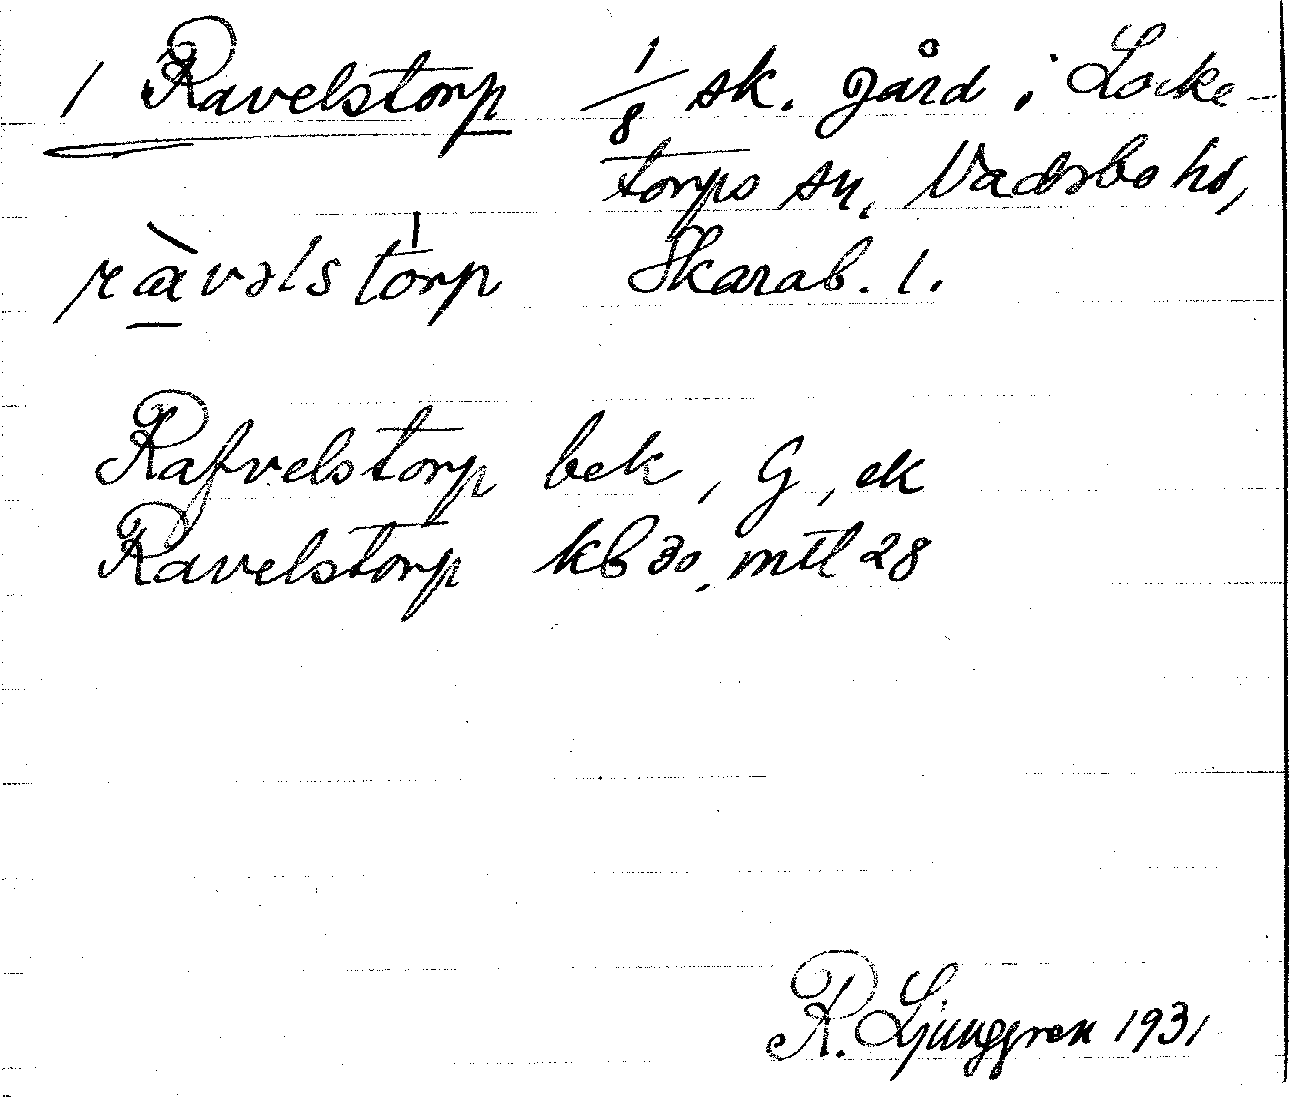 1 Ravelstorp 1/8 sk. gård i Locke-
torps sn, Vadsbo hd,
ràvəlstorp Skarab. l.
Rafvelstorp bek, G, ek
Ravelstorp kb 30, mtl 28
R. Ljunggren 1931